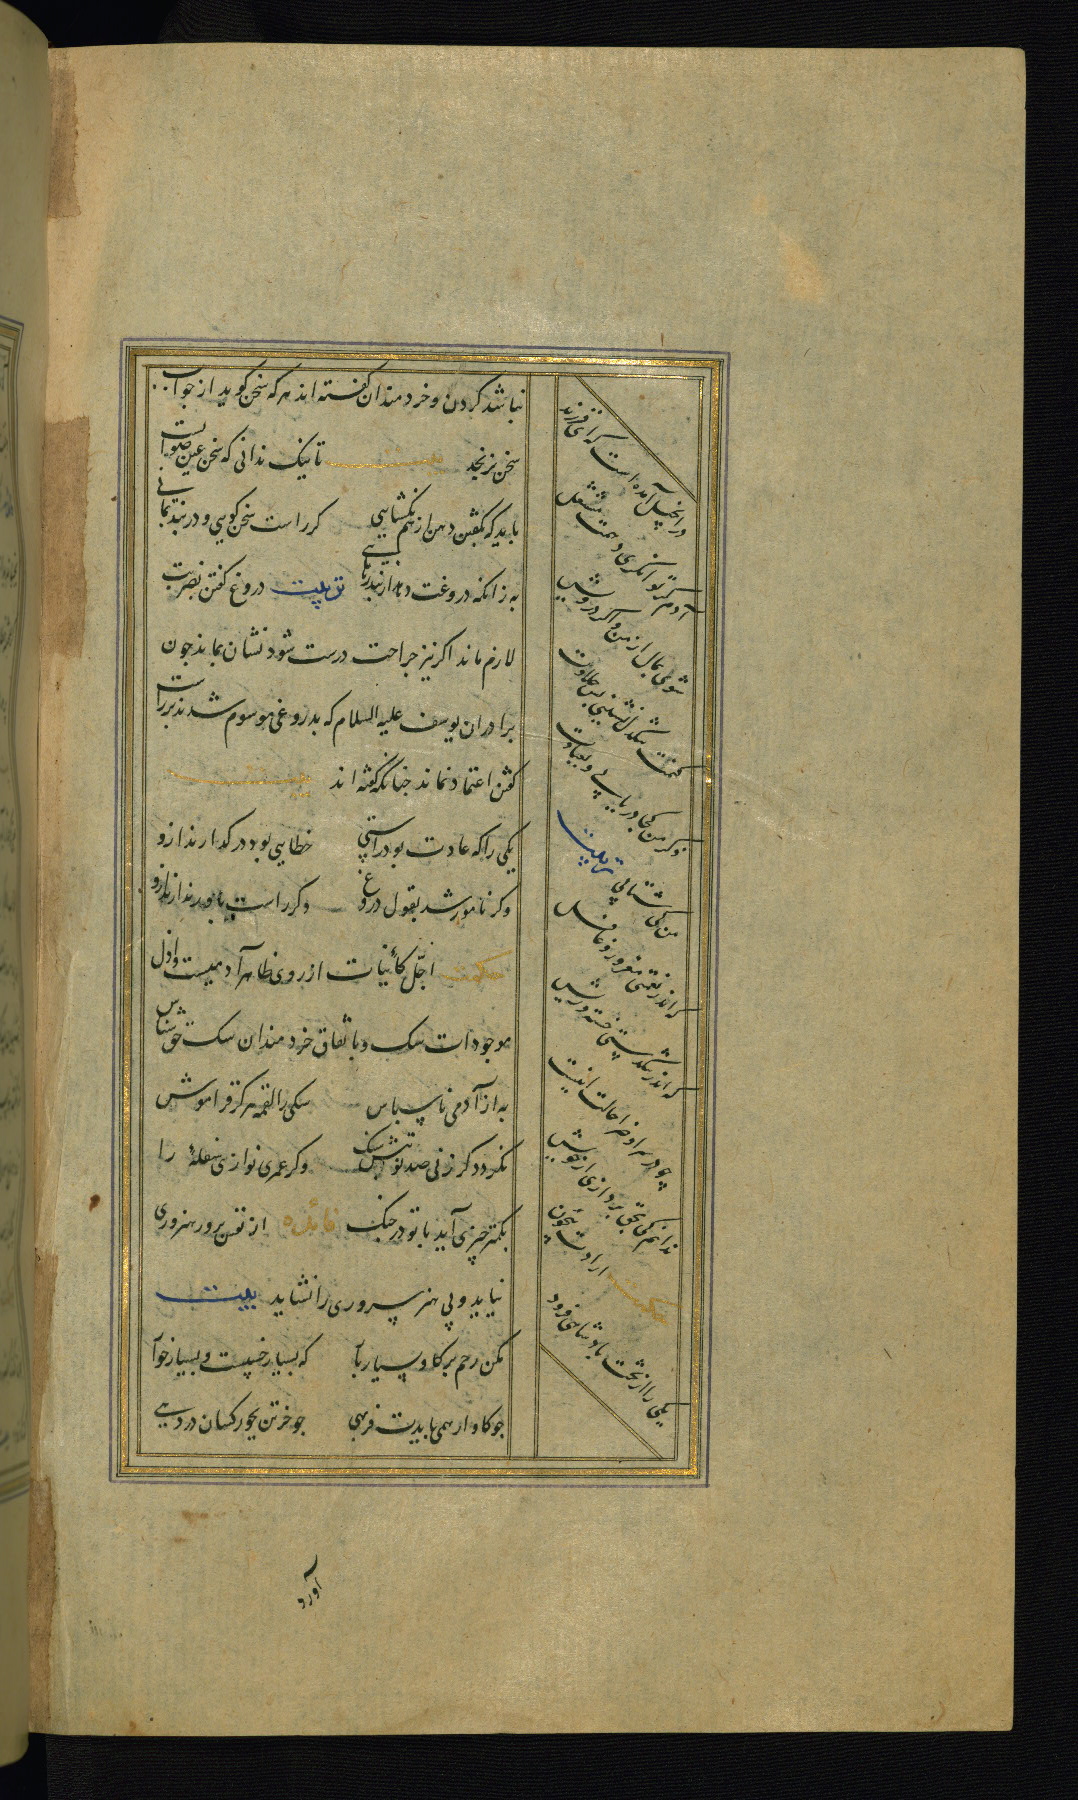 نباشد کردن و خردمندان گفته‌اند هر که سخن گوید از جواب
سخن نرنجد بیت تا نیک ندانی که سخن عین صوابست
باید که بگفتن دهن از هم نگشایی گر راست سخن گویی و در بند بمانی
به زانکه دروغت دهد از بند رهایی تربیت دروغ گفتن بضربت
لازم ماند اگر نیز جراحت درست شود نشان بماند چون
برادران یوسف علیه السلام که بدروغی موسوم شدند بر راست
گفتن اعتماد نماند چنانکه گفته‌اند بیت
یکی را که عادت بود راستی خطایی بود در گذارند ازو
وگر نامور شد بقول دروغ وگر راست باور ندارند ازو
حکمت اجل کائنات از روی ظاهر آدمیست و اذل
موجودات سک و باتفاق خردمندان سک حق شناس
به از آدمی ناسپاس سکی را لقمه هرگز فراموش
نگردد گر زنی صد نوبتش سنگ وگر عمری نوازی سفلهٔ را
بکمتر چیزی آید با تو در جنگ فائده از نفس پرور هنروری
نیاید و بی هنر سروری را نشاید بیت
مکن رحم بر گاو بسیار بار که بسیار خسبست و بسیار خوار
چو گاو ار همی بایدت فربهی چو خر تن بجور کسان در دهی
در انجیل آمده است که ای فرزند
آدم گر توانگری دهمت مشتغل
شوی بمال از من و اگر درویش
کنمت تنگدل نشینی پس حلاوت
ذکر من کجا دریابی و بعبادت
من کی شتابی تربیت
که اندر نعمتی مغرور و غافل
که اندر تنگدستی خسته و ریش
چو در سرا و ضرا حالت اینست
ندانم کی بحق پردازی از خویش
حکمت ارادت بیچون
یکی را از تخت پادشاهی فرود
آورد